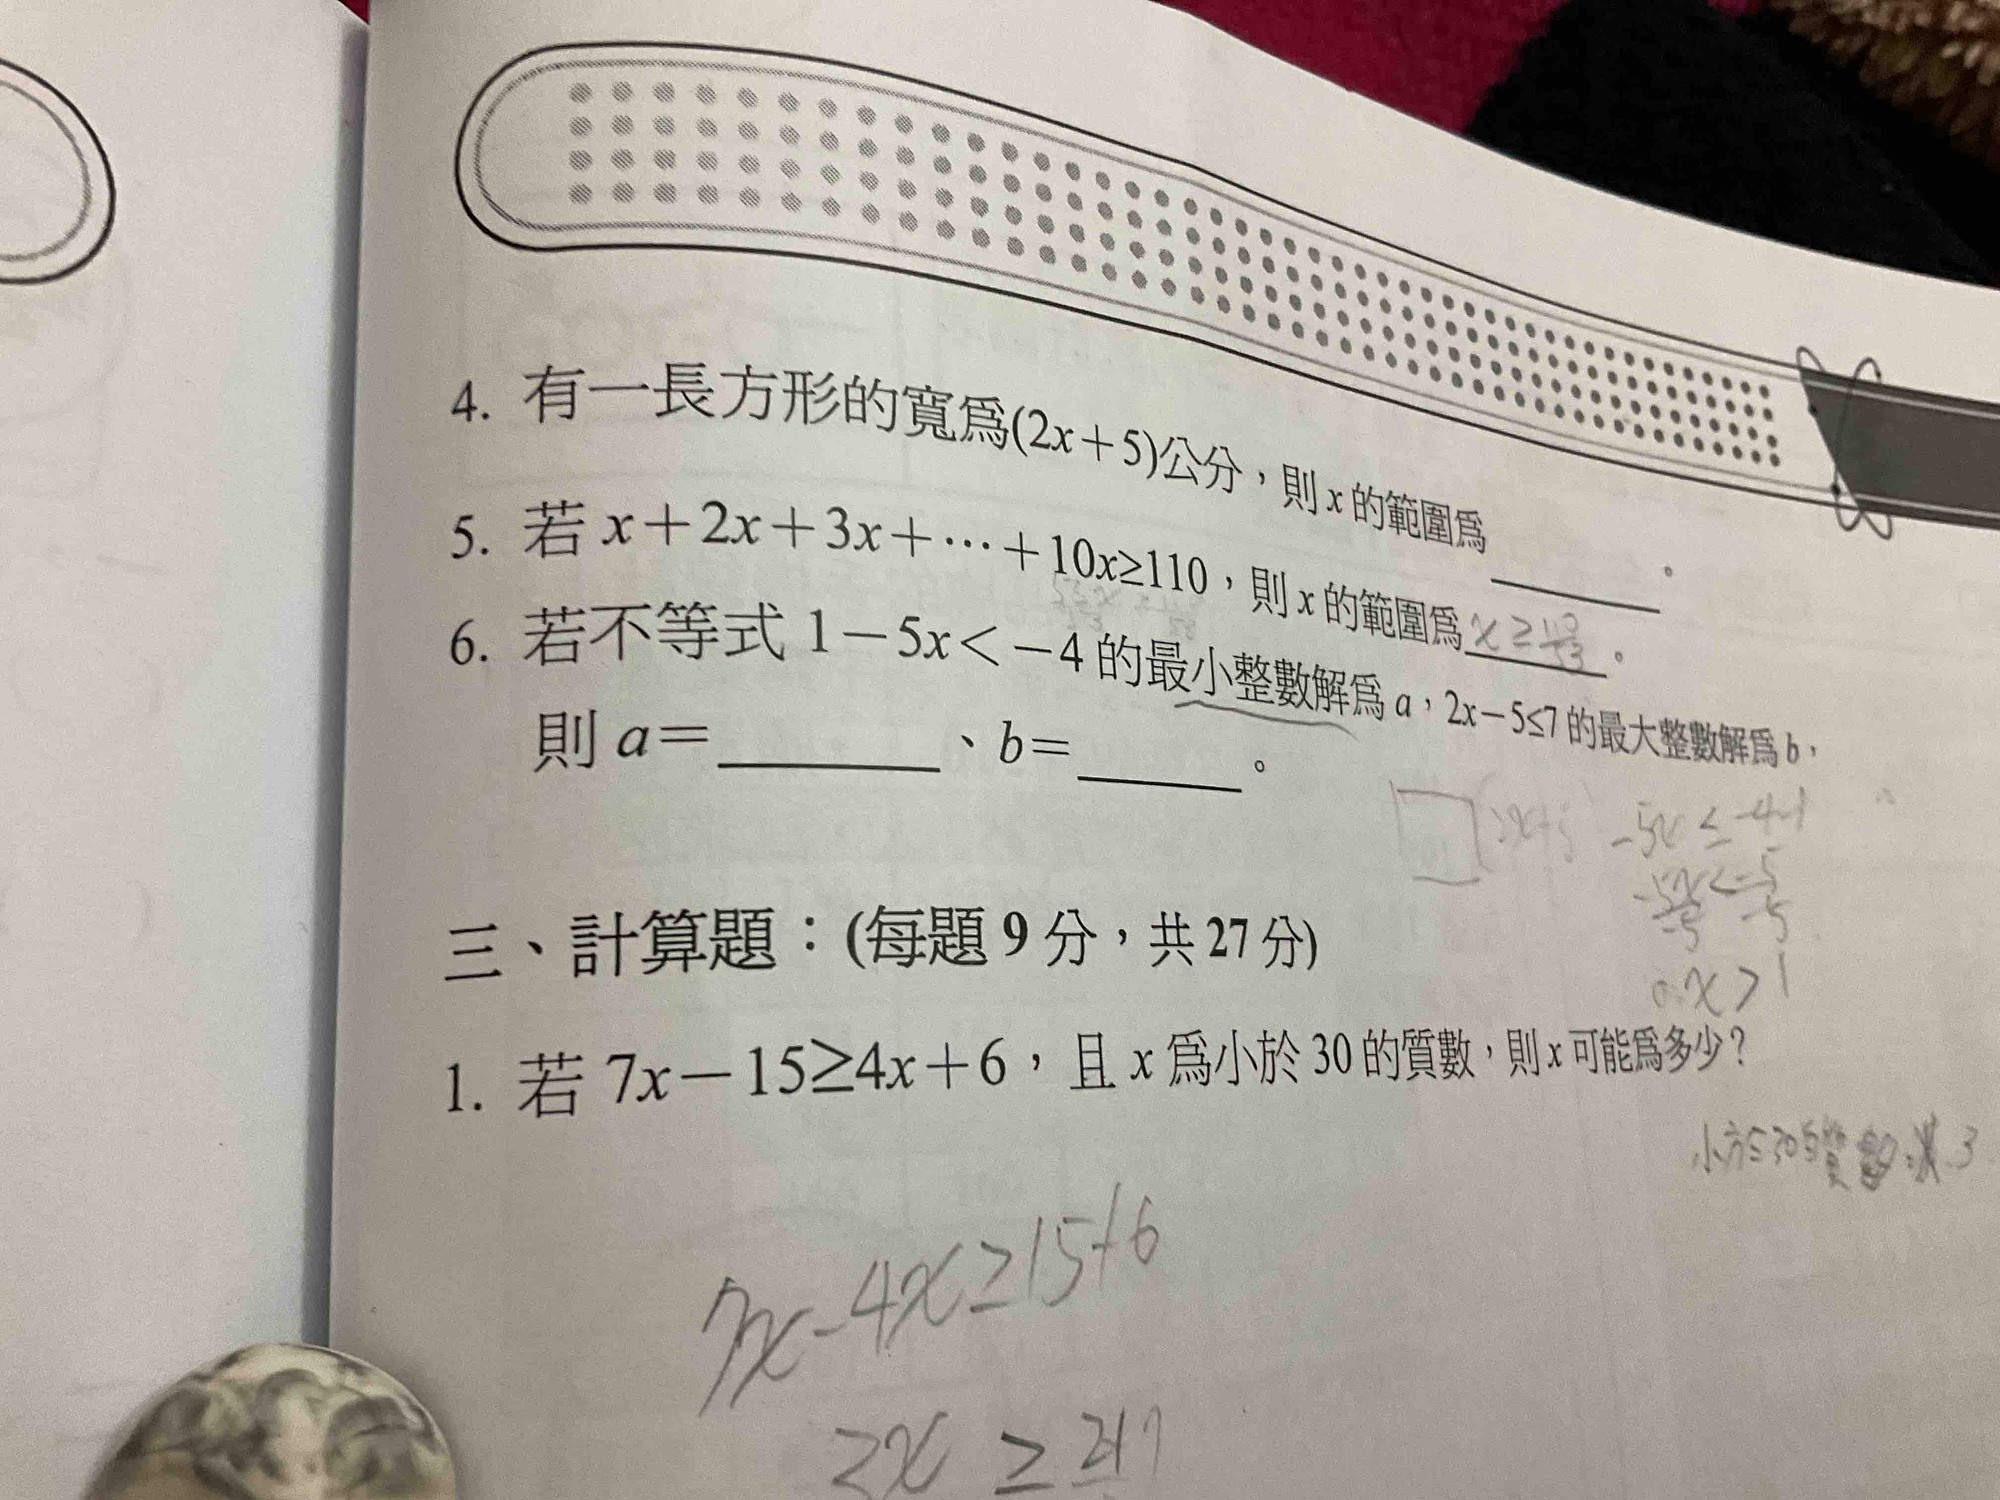 4. 有一長方形的寬為(2x＋5)公分，則x的範圍為＿＿＿＿。
5. 若 x＋2x＋3x＋⋯＋10x≥110，則x的範圍為 x ≥ 。
6. 若不等式 1－5x＜－4 的最小整數解為 a，2x－5≤7 的最大整數解為 b，
則 a＝＿＿＿＿、b＝＿＿＿＿。
2x+5
-5x ≤ -4-1
-5x < -5
-5 -5
x > 1
三、計算題：(每題 9 分，共 27 分)
1. 若 7x－15≥4x＋6，且 x 為小於 30 的質數，則 x 可能為多少？
小於30的質數 3
7x-4x≥15+6
x ≥